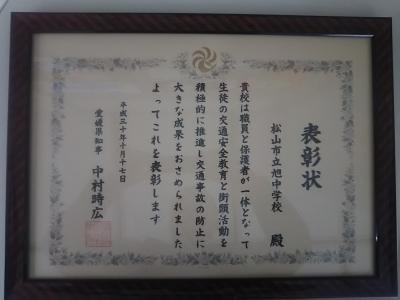 表彰状
松山市立旭中学校 殿
貴校は職員と保護者が一体となって
生徒の交通安全教育と街頭活動を
積極的に推進し交通事故の防止に
大きな成果をおさめられました
よってこれを表彰します
平成三十年十月十七日
愛媛県知事 中村時広